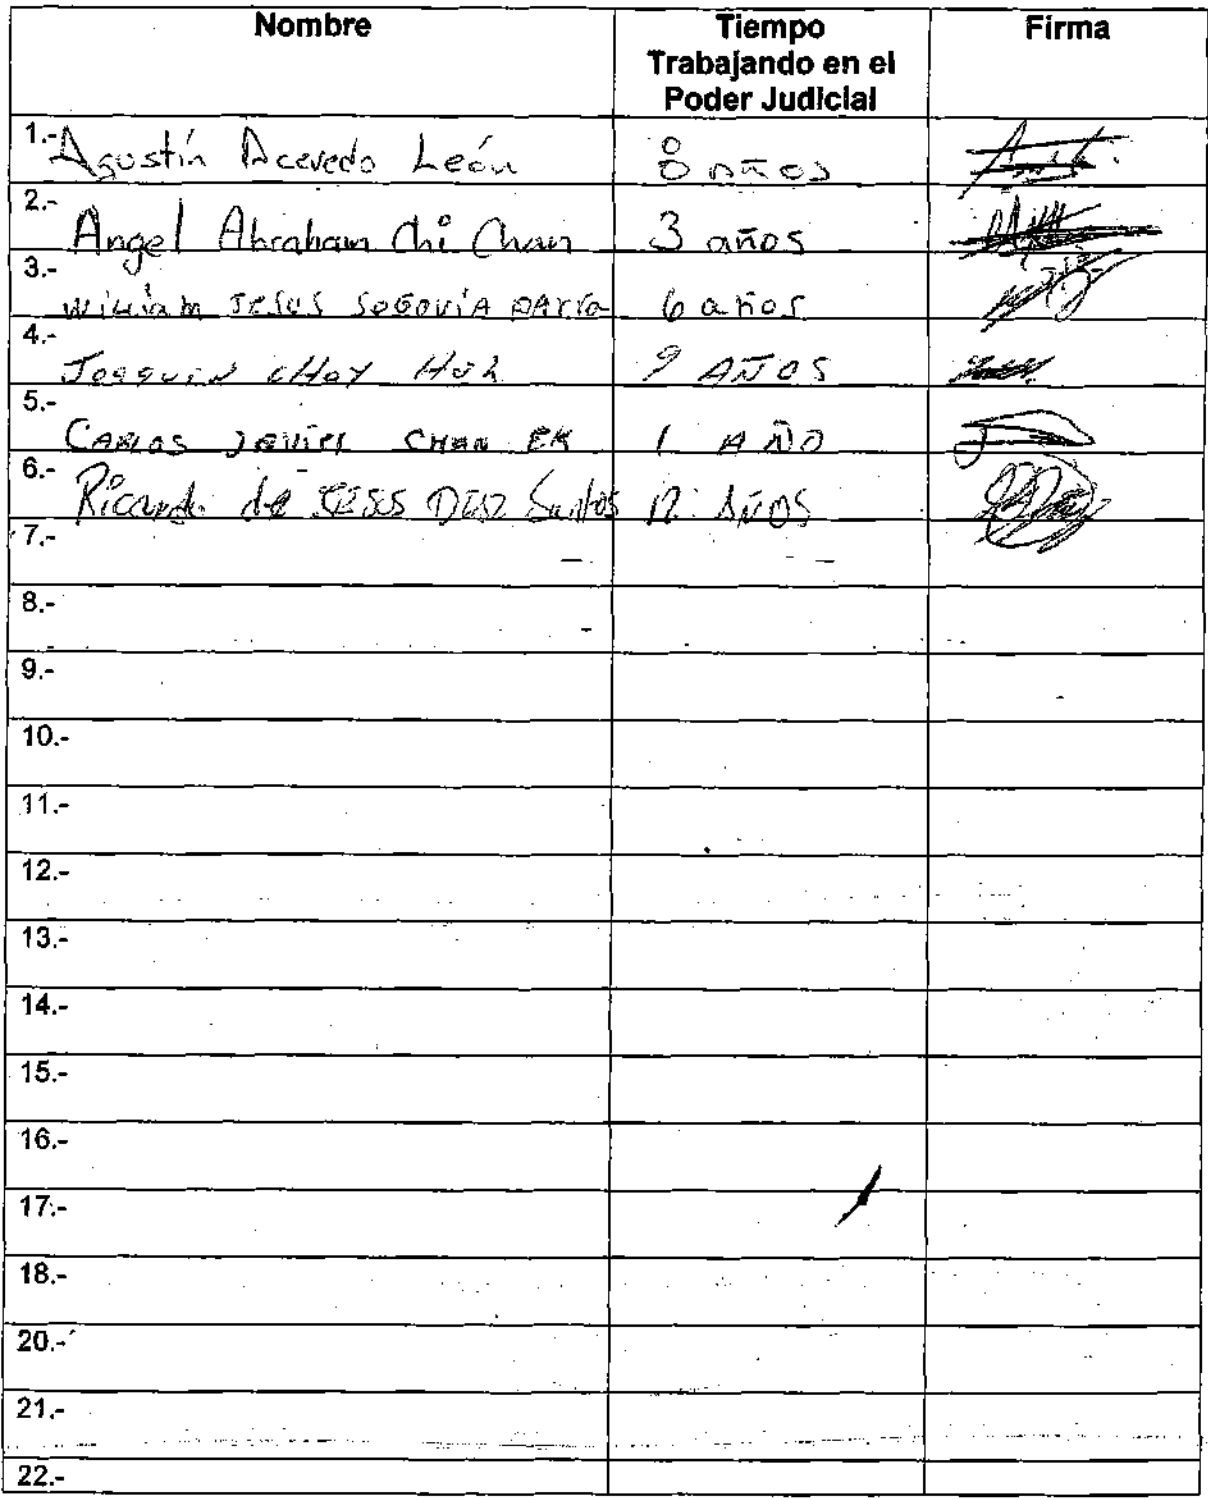 Nombre
Tiempo
Trabajando en el
Poder Judicial
Firma
1.- Agustín Acevedo León 8 años
2.- Angel Abraham Chi Chan 3 años
3.- William Jesus Segovia 6 años
4.- Joaquin cHoy Huh 9 AÑOS
5.- CARLOS Javier CHAN EK 1 AÑO
6.- Ricardo de Santos 12 AÑOS
7.-
8.-
9.-
10.-
11.-
12.-
13.-
14.-
15.-
16.-
17.-
18.-
20.-
21.-
22.-